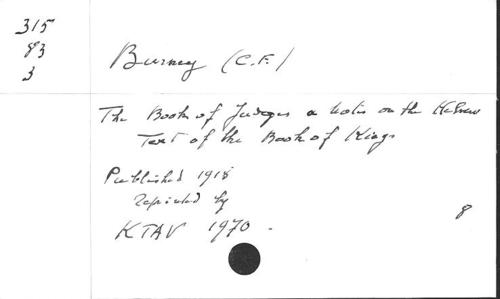 315
83
3
Burney (C.F.)
The Book of Judges a notes on the Hebrew
Text of the Book of Kings
Published 1918
reprinted by
KTAV 1970.
8